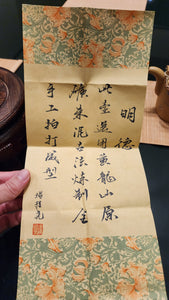 明德
此壺選用黃龍山原
礦朱泥古法煉制全
手工拍打成型